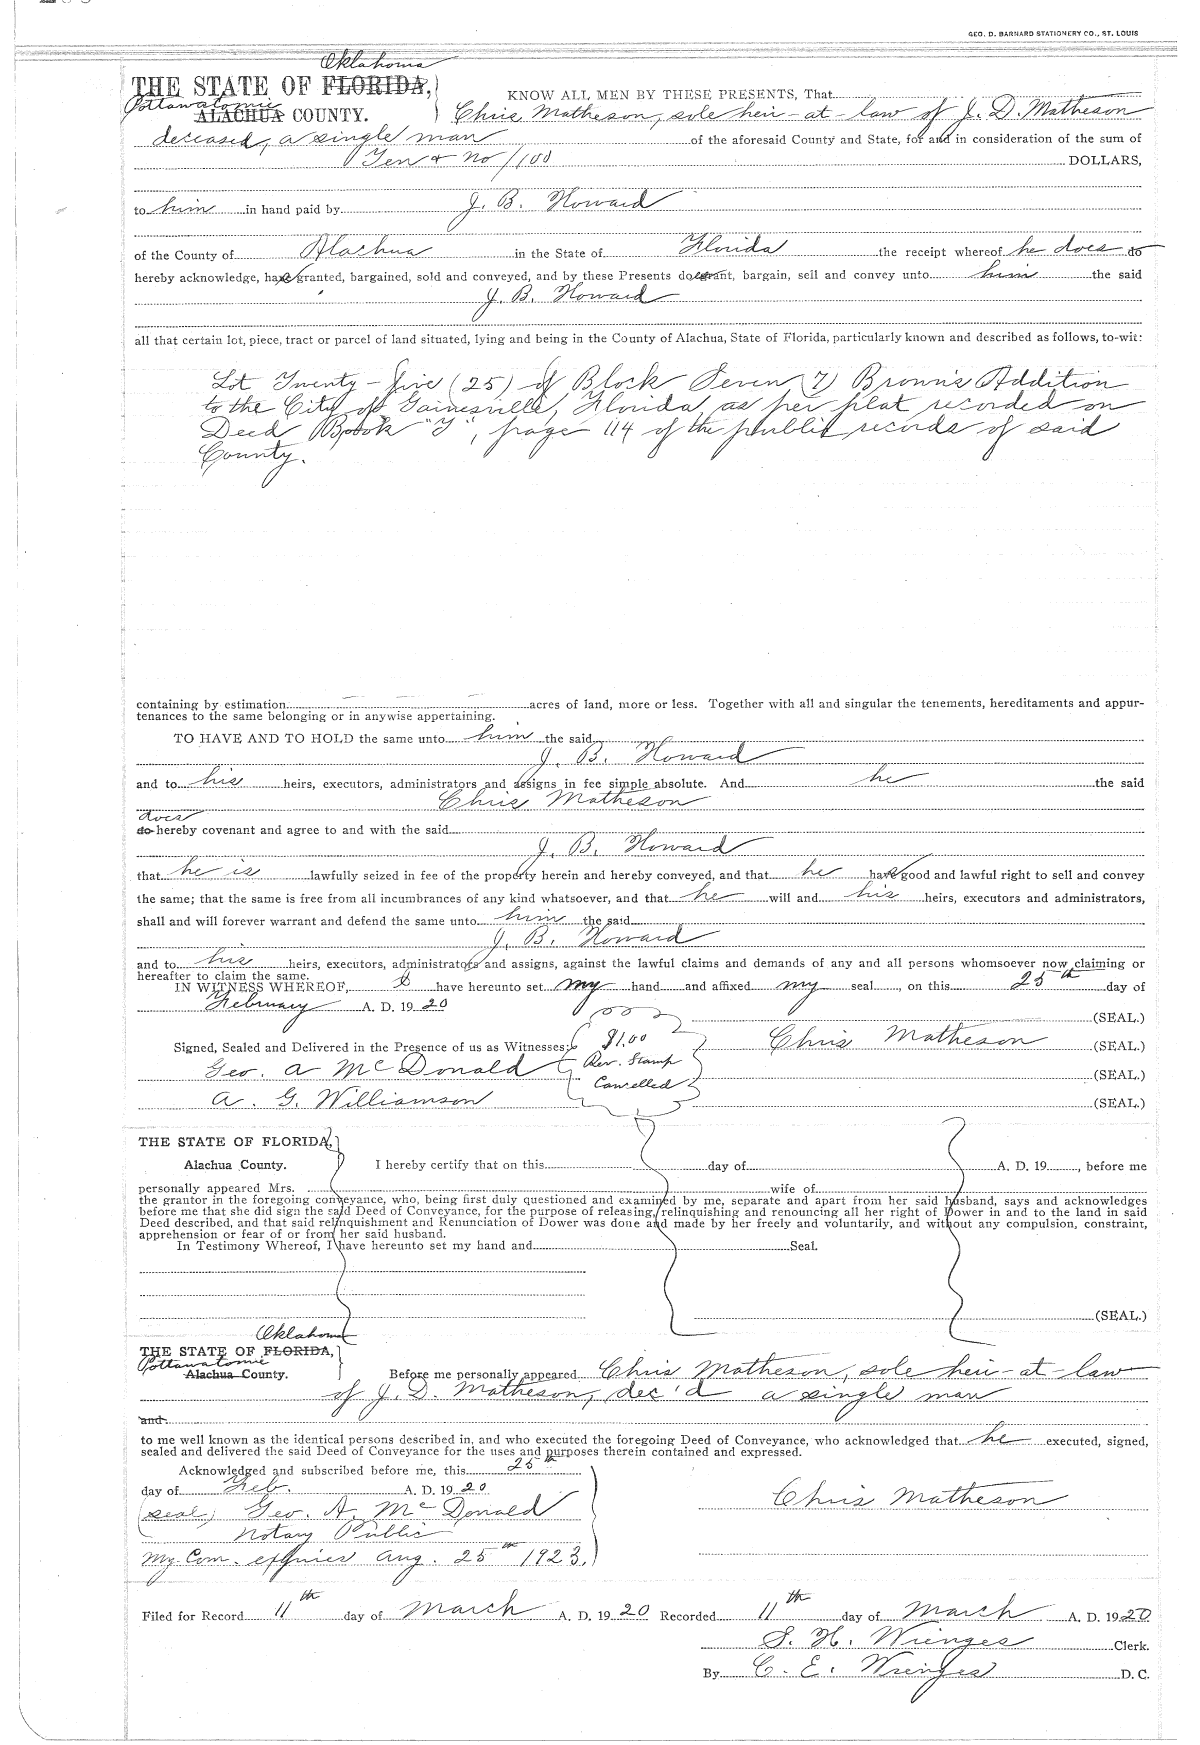 GEO. D. BARNARD STATIONERY CO., ST. LOUIS
Oklahoma
THE STATE OF FLORIDA,
Pottawatomie
ALACHUA COUNTY.
KNOW ALL MEN BY THESE PRESENTS, That
Chris Matheson, sole heir-at-law of J. D. Matheson
deceased, a single man of the aforesaid County and State, for and in consideration of the sum of
Ten & no/100 DOLLARS,
to him in hand paid by J. B. Howard
of the County of Alachua in the State of Florida the receipt whereof he does do
hereby acknowledge, have granted, bargained, sold and conveyed, and by these Presents do grant, bargain, sell and convey unto him the said
J. B. Howard
all that certain lot, piece, tract or parcel of land situated, lying and being in the County of Alachua, State of Florida, particularly known and described as follows, to-wit:
Lot Twenty-five (25) of Block Seven (7) Brown's Addition
to the City of Gainesville, Florida, as per plat recorded on
Deed Book "Y", page 114 of the public records of said
County.
containing by estimation acres of land, more or less. Together with all and singular the tenements, hereditaments and appur-
tenances to the same belonging or in anywise appertaining.
TO HAVE AND TO HOLD the same unto him the said
J. B. Howard
and to his heirs, executors, administrators and assigns in fee simple absolute. And he the said
Chris Matheson
does
do hereby covenant and agree to and with the said
J. B. Howard
that he is lawfully seized in fee of the property herein and hereby conveyed, and that he have good and lawful right to sell and convey
the same; that the same is free from all incumbrances of any kind whatsoever, and that he will and his heirs, executors and administrators,
shall and will forever warrant and defend the same unto him the said
J. B. Howard
and to his heirs, executors, administrators and assigns, against the lawful claims and demands of any and all persons whomsoever now claiming or
hereafter to claim the same.
IN WITNESS WHEREOF, I have hereunto set my hand and affixed my seal, on this 25th day of
February A. D. 1920
(SEAL.)
Signed, Sealed and Delivered in the Presence of us as Witnesses: $1.00 Chris Matheson (SEAL.)
Geo. A McDonald Rev. Stamp (SEAL.)
A. G. Williamson Cancelled (SEAL.)
THE STATE OF FLORIDA,
Alachua County. I hereby certify that on this day of A. D. 19, before me
personally appeared Mrs. wife of
the grantor in the foregoing conveyance, who, being first duly questioned and examined by me, separate and apart from her said husband, says and acknowledges
before me that she did sign the said Deed of Conveyance, for the purpose of releasing, relinquishing and renouncing all her right of Dower in and to the land in said
Deed described, and that said relinquishment and Renunciation of Dower was done and made by her freely and voluntarily, and without any compulsion, constraint,
apprehension or fear of or from her said husband.
In Testimony Whereof, I have hereunto set my hand and Seal.
(SEAL.)
Oklahoma
THE STATE OF FLORIDA,
Pottawatomie
Alachua County. Before me personally appeared Chris Matheson, sole heir-at law
of J. D. Matheson, dec'd a single man
and
to me well known as the identical persons described in, and who executed the foregoing Deed of Conveyance, who acknowledged that he executed, signed,
sealed and delivered the said Deed of Conveyance for the uses and purposes therein contained and expressed.
Acknowledged and subscribed before me, this 25th
day of Feb. A. D. 1920
Chris Matheson
(seal) Geo. A. McDonald
Notary Public
My Com. expires Aug. 25th 1923.
Filed for Record 11th day of March A. D. 1920 Recorded 11th day of March A. D. 1920
S. H. Wienges Clerk.
By C. E. Wienges D. C.